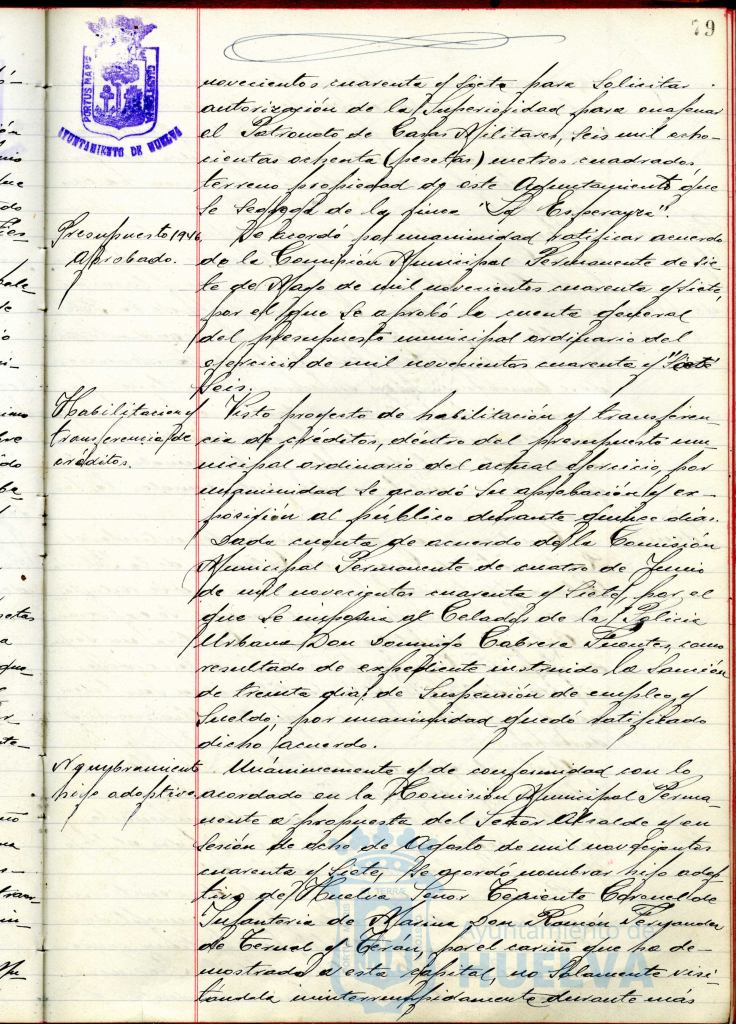 79
PORTUS MARIS
AYUNTAMIENTO DE HUELVA
novecientos cuarenta y siete para solicitar
autorización de la Superioridad para enagenar
al Patronato de Casas Militares, seis mil ocho-
cientas ochenta (pesetas) metros cuadrados
terreno propiedad de este Ayuntamiento que
se segrega de la finca "La Esperanza".
Presupuesto 1946
aprobado.
Se acordó por unanimidad ratificar acuerdo
de la Comisión Municipal Permanente de sie-
te de Mayo de mil novecientos cuarenta y siete,
por el que se aprobó la cuenta general
del presupuesto municipal ordinario del
ejercicio de mil novecientos cuarenta y "siete"
seis.
Habilitacion y
transferencia de
créditos.
Visto proyecto de habilitación y transferen-
cia de créditos, déntro del presupuesto mu-
nicipal ordinario del actual ejercicio, por
unanimidad se acordó su aprobación y ex-
posición al público durante quince dias.
Dada cuenta de acuerdo de la Comisión
Municipal Permanente de cuatro de Junio
de mil novecientos cuarenta y siete, por el
que se imponia al Celador de la Policia
Urbana Don Domingo Cabrera Fuentes, como
resultado de expediente instruido la sanción
de treinta dias de suspensión de empleo y
sueldo; por unanimidad quedó ratificado
dicho acuerdo.
Nombramiento
hijo adoptivo.
Unánimemente y de conformidad con lo
acordado en la Comisión Municipal Perma-
nente a propuesta del Señor Alcalde y en
sesión de ocho de Agosto de mil novecientos
cuarenta y siete, se acordó nombrar hijo adop-
tivo de Huelva Señor Teniente Coronel de
Infanteria de Marina Don Ramón Fernandez
de Teruel y Terán, por el cariño que ha de-
mostrado a esta capital, no solamente visi-
tandola ininterrumpidamente durante más
Ayuntamiento de
HUELVA